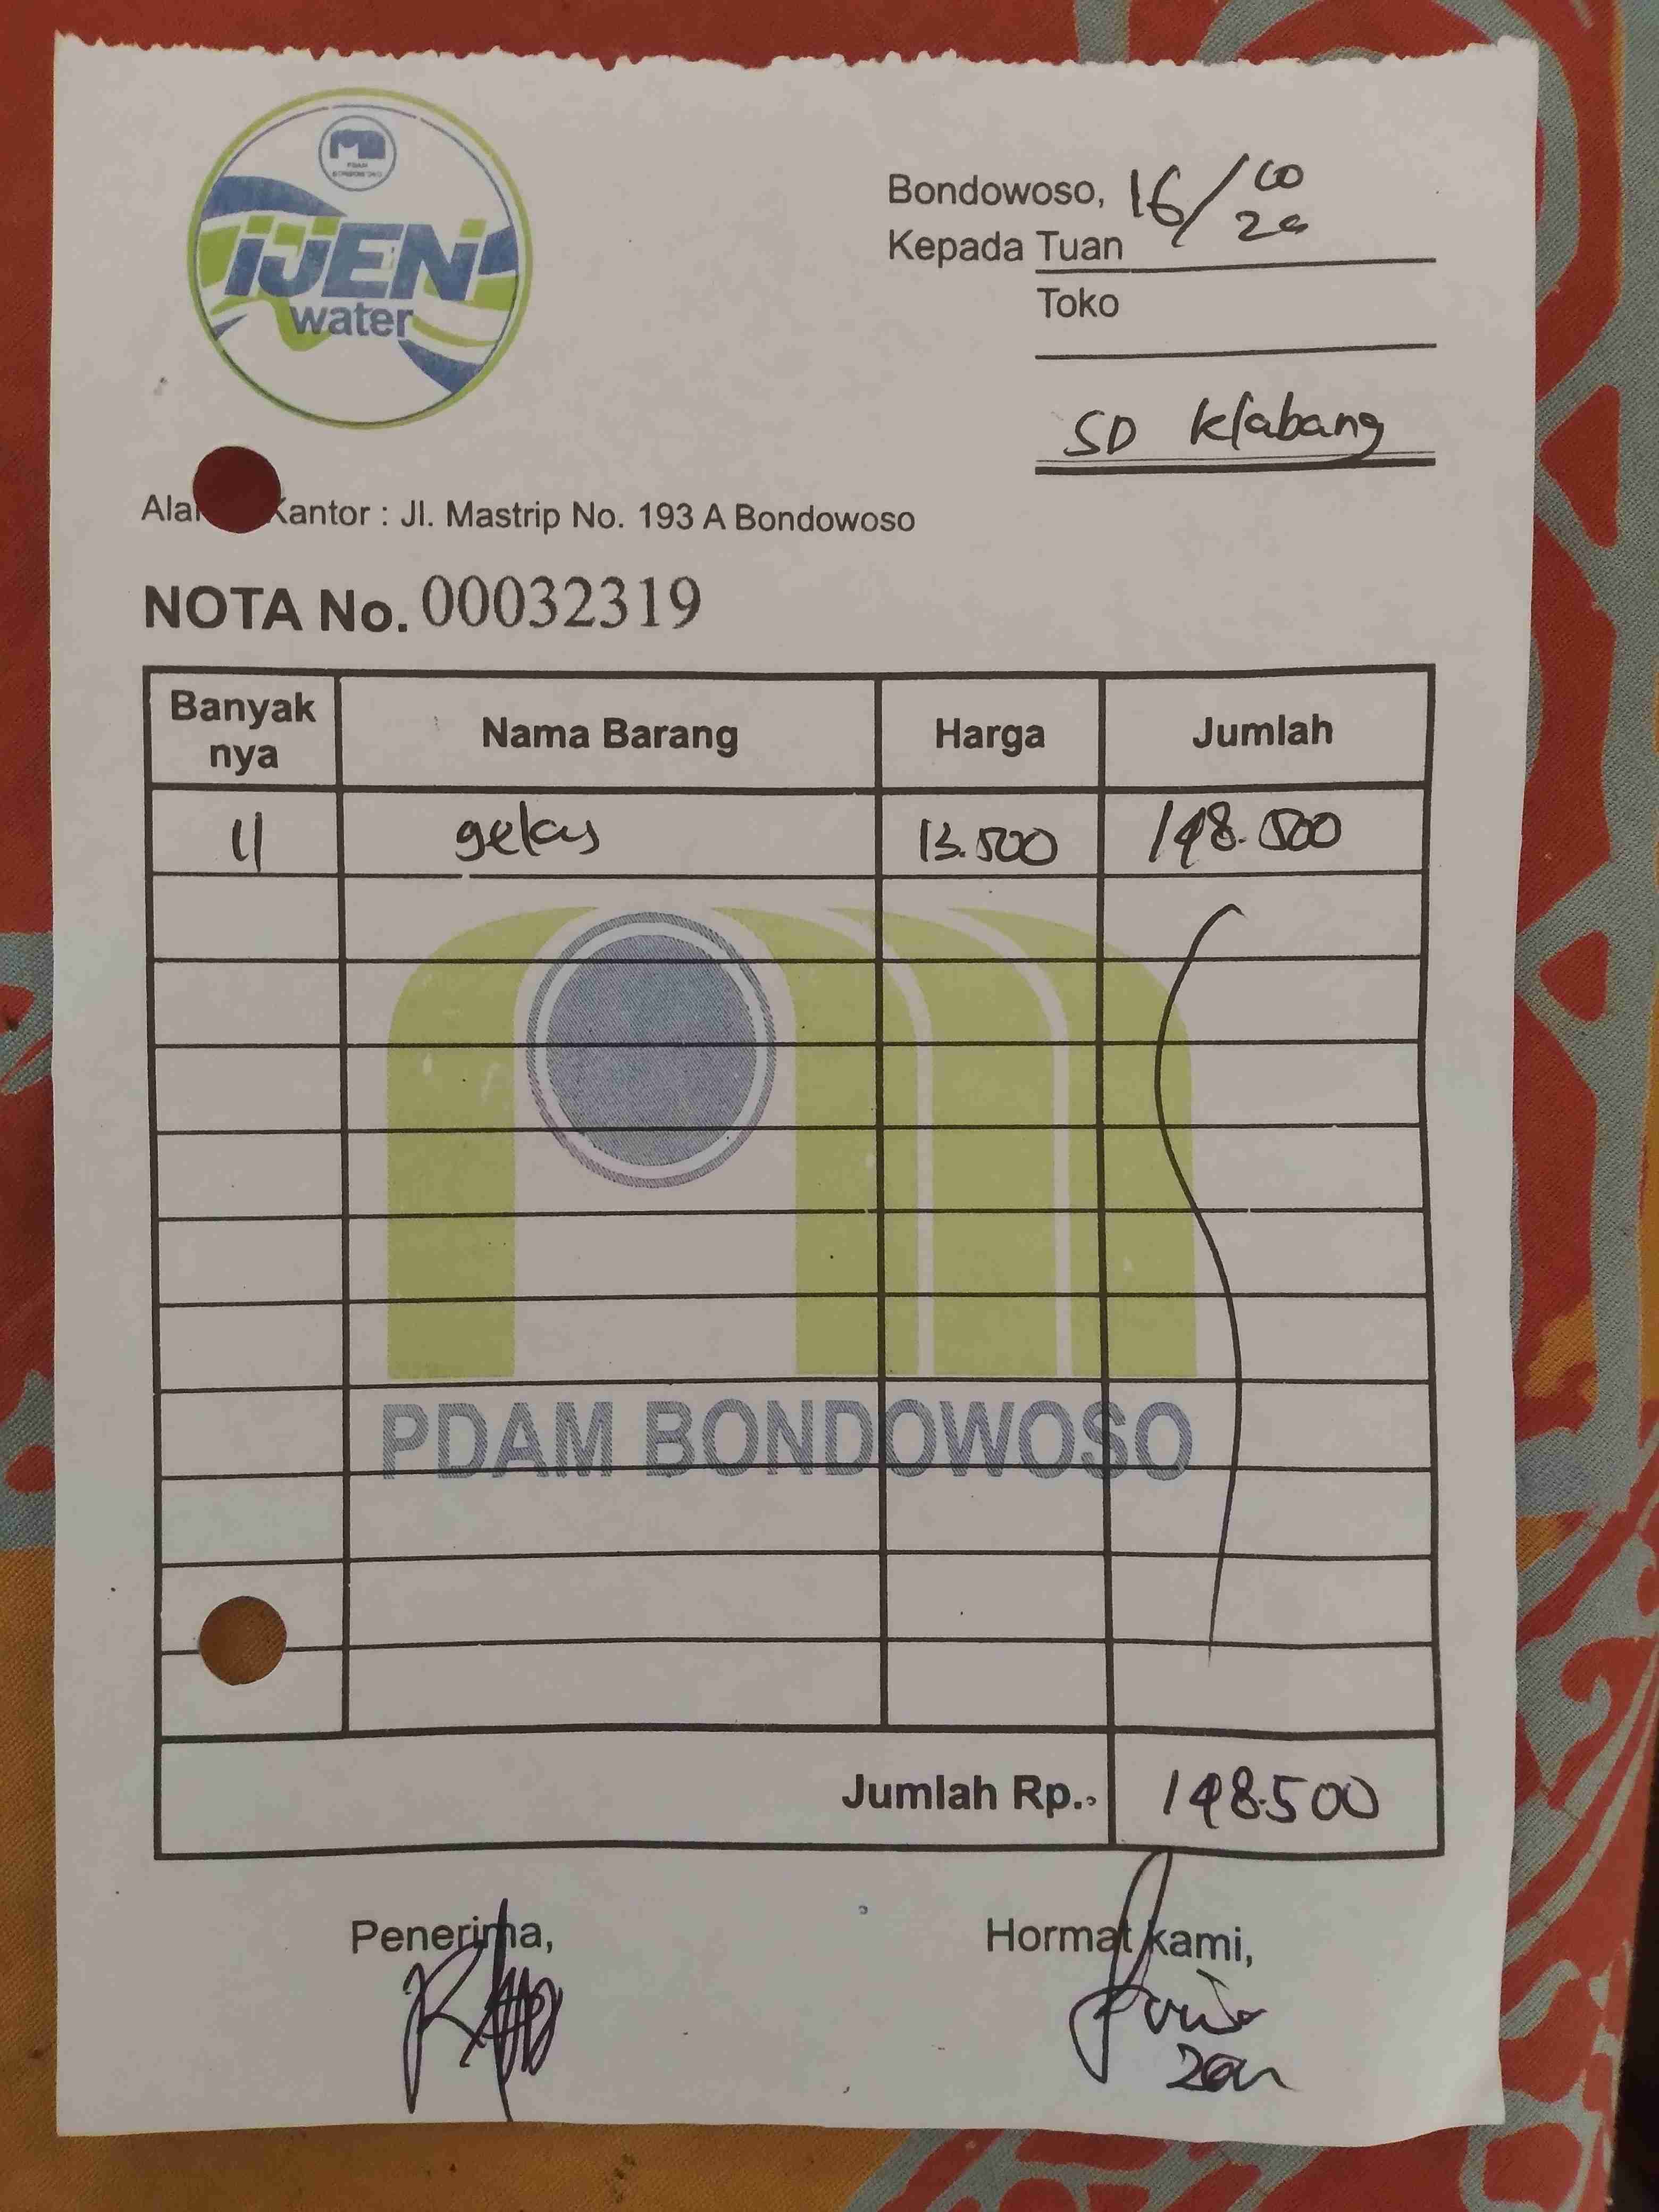 PDAM
BONDOWOSO
IJEN
water
Bondowoso, 16/
Kepada Tuan
Toko
SD Klabang
Kantor : Jl. Mastrip No. 193 A Bondowoso
NOTA No. 00032319
Banyak nya Nama Barang Harga Jumlah
11 gelas 13.500 148.500
PDAM BONDOWOSO
Jumlah Rp. 148.500
Penerima, Hormat kami,